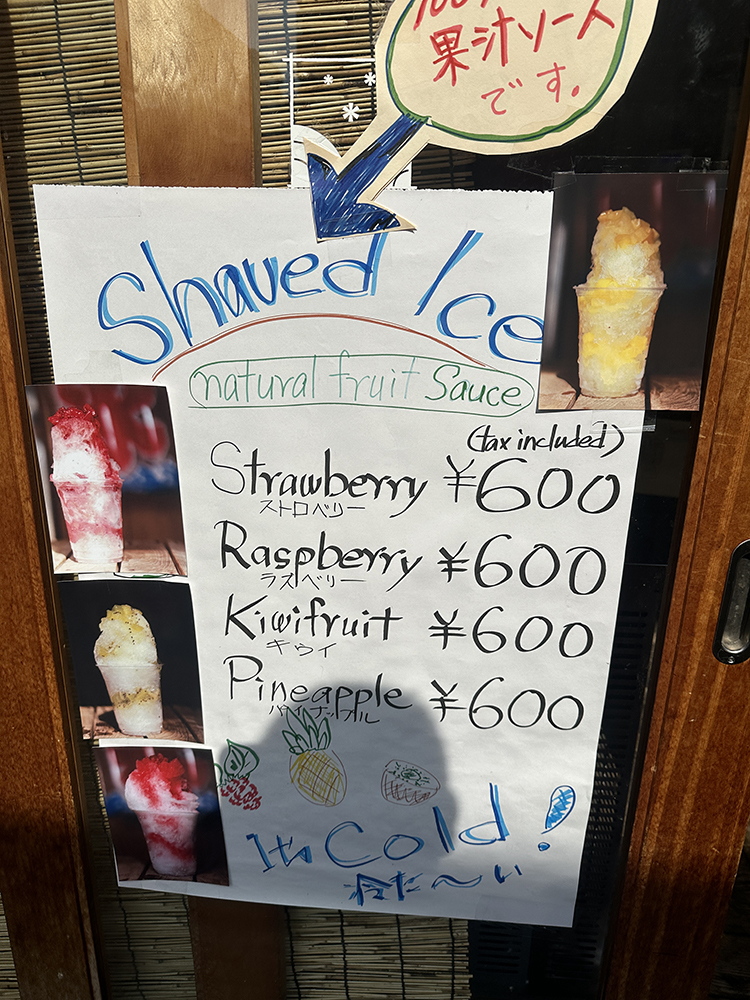 100%
果汁ソース
です.
Shaved Ice
natural fruit Sauce
(tax included)
Strawberry ¥600
ストロベリー
Raspberry ¥600
ラズベリー
Kiwifruit ¥600
キウイ
Pineapple ¥600
パイナップル
Cold!